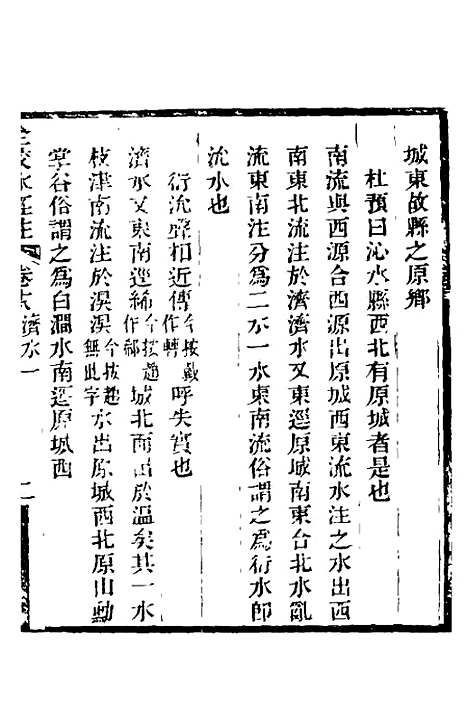 城東故縣之原鄉
杜預曰沁水縣西北有原城者是也
南流與西源合西源出原城西東流水注之水出西
南東北流注於濟濟水又東逕原城南東合北水亂
流東南注分為二水一水東南流俗謂之為衍水卽
沇水也
衍沇聲相近傳今按戴作轉呼失實也
濟水又東南逕絺今按趙作郗城北而出於溫矣其一水
枝津南流注於湨湨今按趙無此字水出原城西北原山勳
掌谷俗謂之為白澗水南逕原城西
全校水經注 卷七 濟水一 二